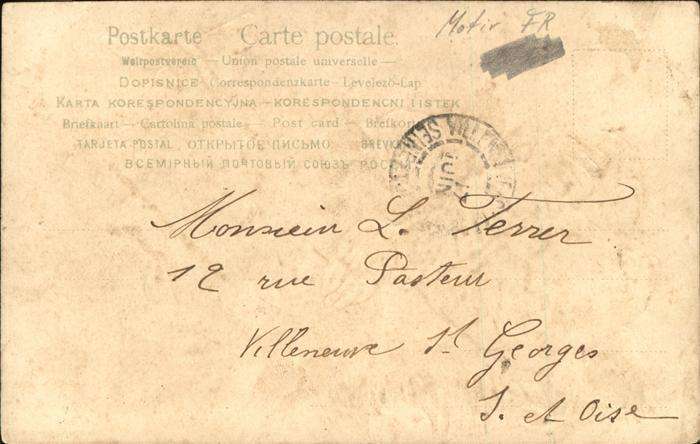 Motiv FR
Postkarte Carte postale.
Weltpostverein — Union postale universelle —
DOPISNICE — Correspondenzkarte — Levelező-Lap
KARTA KORESPONDENCYJNA — KORESPONDENCNI LISTEK
Briefkaart — Cartolina postale — Post card — Brefkort
TARJETA POSTAL, ОТКРЫТОЕ ПИСЬМО
ВСЕМІРНЫЙ ПОЧТОВЫЙ СОЮЗЪ
JUIN
Monsieur L. Ferrer
12 rue Pasteur
Villeneuve St Georges
S. et Oise